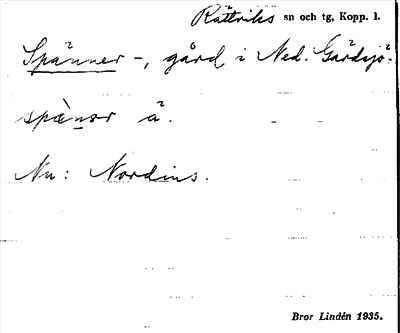 Rättviks sn och tg, Kopp. l.
Spänner -, gård i Ned. Gärdsjö.
spä̀nər å.
Nu: Nordins.
Bror Lindén 1935.